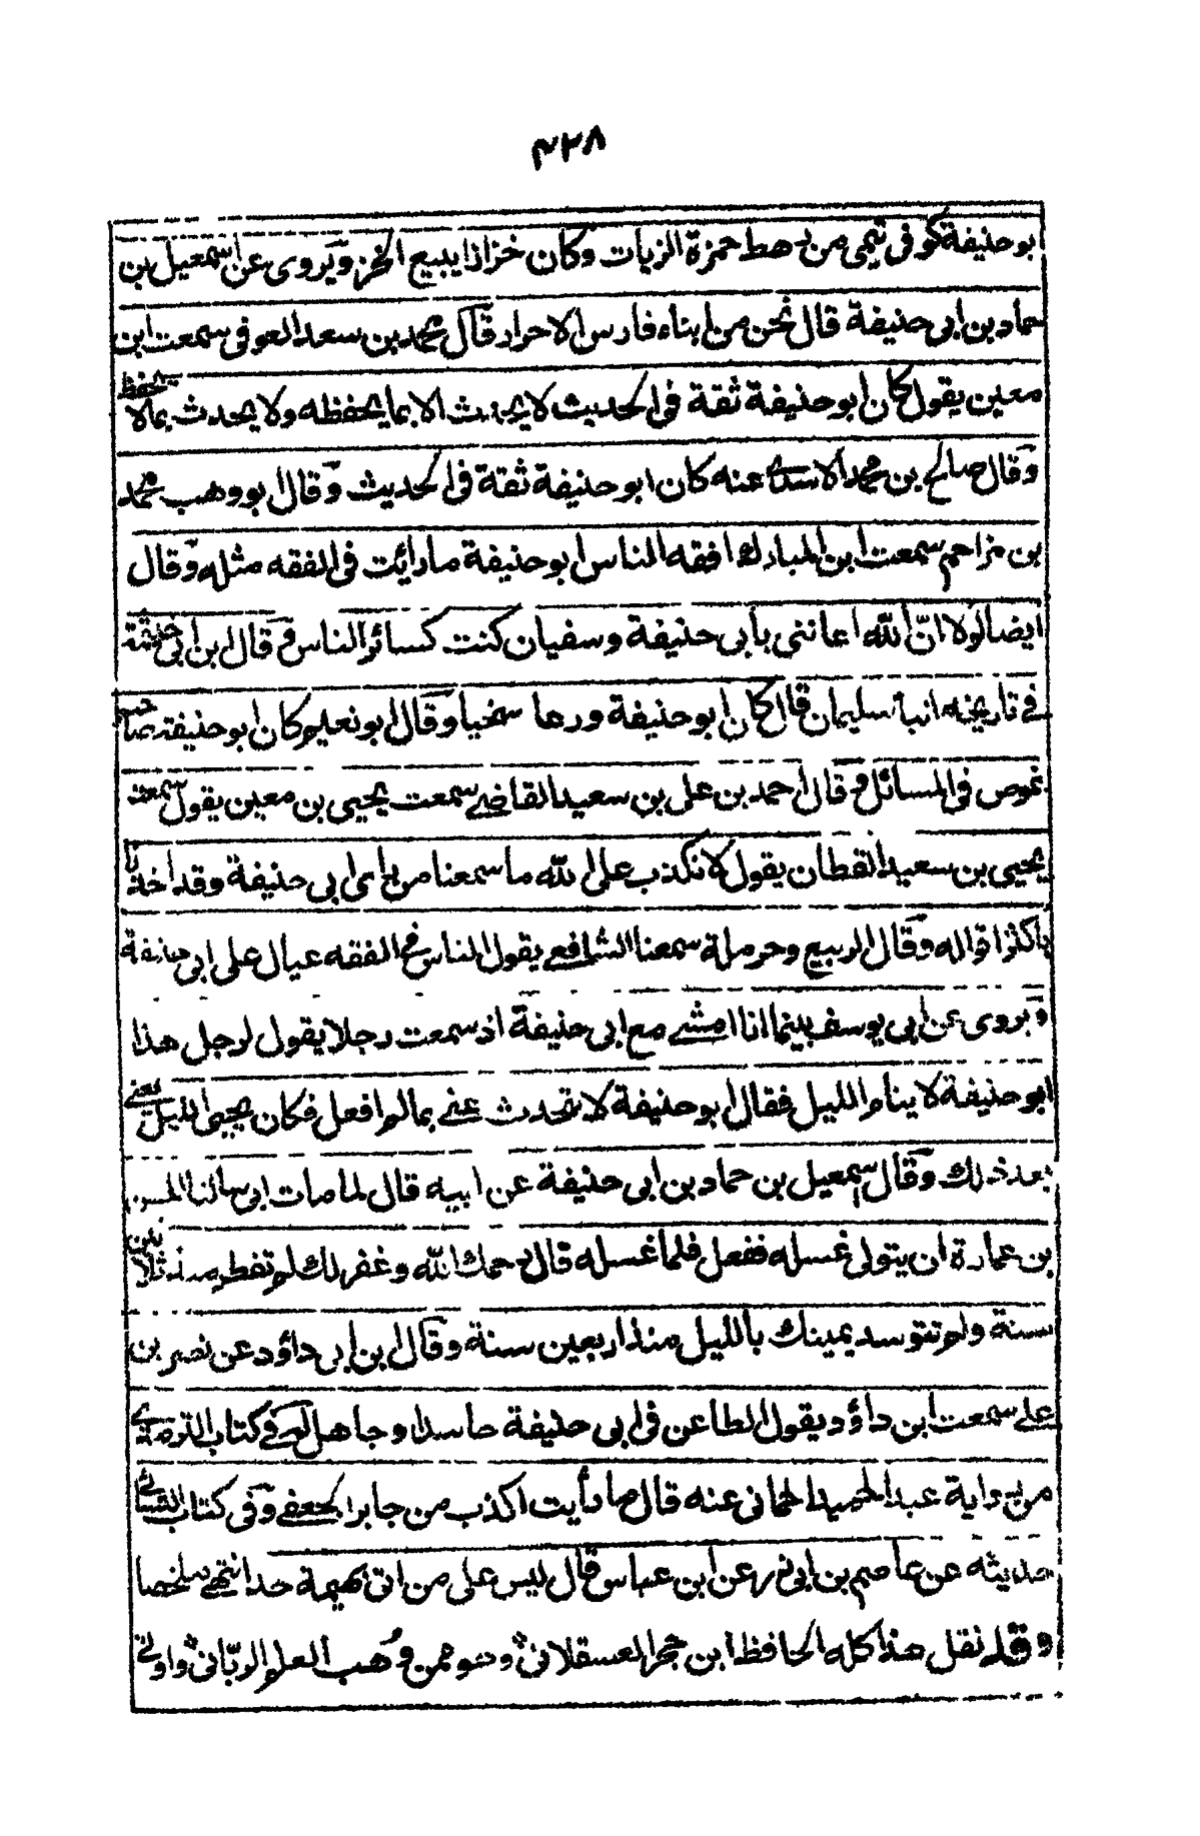 ۴۲۸
ابو حنيفة كوفى تيمى من رهط حمزة الزيات وكان خزازا يبيع الخز ويروى عن اسمعيل بن
حماد بن ابى حنيفة قال نحن من ابناء فارس الاحرار قال محمد بن سعد العوفى سمعت ابن
معين يقول كان ابو حنيفة ثقة فى الحديث لا يحدث الا بما يحفظه ولا يحدث بما لا يحفظ
وقال صالح بن محمد الاسدى عنه كان ابو حنيفة ثقة فى الحديث وقال ابو وهب محمد
بن مزاحم سمعت ابن المبارك افقه الناس ابو حنيفة ما رائت فى الفقه مثله وقال
ايضا لولا انّ اللّه اعاننى بابى حنيفة وسفيان كنت كسائر الناس وقال ابن ابى خيثمة
فى تاريخه انبا سليمان قال كان ابو حنيفة ورعا سخيا وقال ابو نعيم كان ابو حنيفة صاحب
غوص فى المسائل وقال احمد بن على بن سعيد القاضى سمعت يحيى بن معين يقول سمعت
يحيى بن سعيد القطان يقول لا نكذب على اللّه ما سمعنا من راى ابى حنيفة وقد اخذنا
باكثر اقواله وقال الربيع وحرملة سمعنا الشافعى يقول الناس فى الفقه عيال على ابى حنيفة
ويروى عن ابى يوسف بينما انا امشى مع ابى حنيفة اذ سمعت رجلا يقول لرجل هذا
ابو حنيفة لا ينام الليل فقال ابو حنيفة لا تحدث عنى بما لم افعل فكان يحيى الليل يعنى
بعد ذلك وقال اسمعيل بن حماد بن ابى حنيفة عن ابيه قال لما مات ابى سالنا الحسن
بن عمارة ان يتولى غسله ففعل فلما غسله قال رحمك اللّه وغفر لك لم تفطر منذ ثلاثين
سنة ولم تتوسد يمينك بالليل منذ اربعين سنة وقال ابن ابى داؤد عن نصر بن
على سمعت ابن داؤد يقول الطاعن فى ابى حنيفة حاسد او جاهل له فى كتاب الترمذى
من رواية عبد الحميد الحمانى عنه قال ما رأيت اكذب من جابر الجعفى وفى كتاب النسائى
حديثه عن عاصم بن ابى زر عن ابن عباس قال ليس على من اتى بهيمة حد انتهى ملخصا
وقد نقل هذا كله الحافظ ابن حجر العسقلانى وهو ممن وُهب العلم الربّانى واوتى